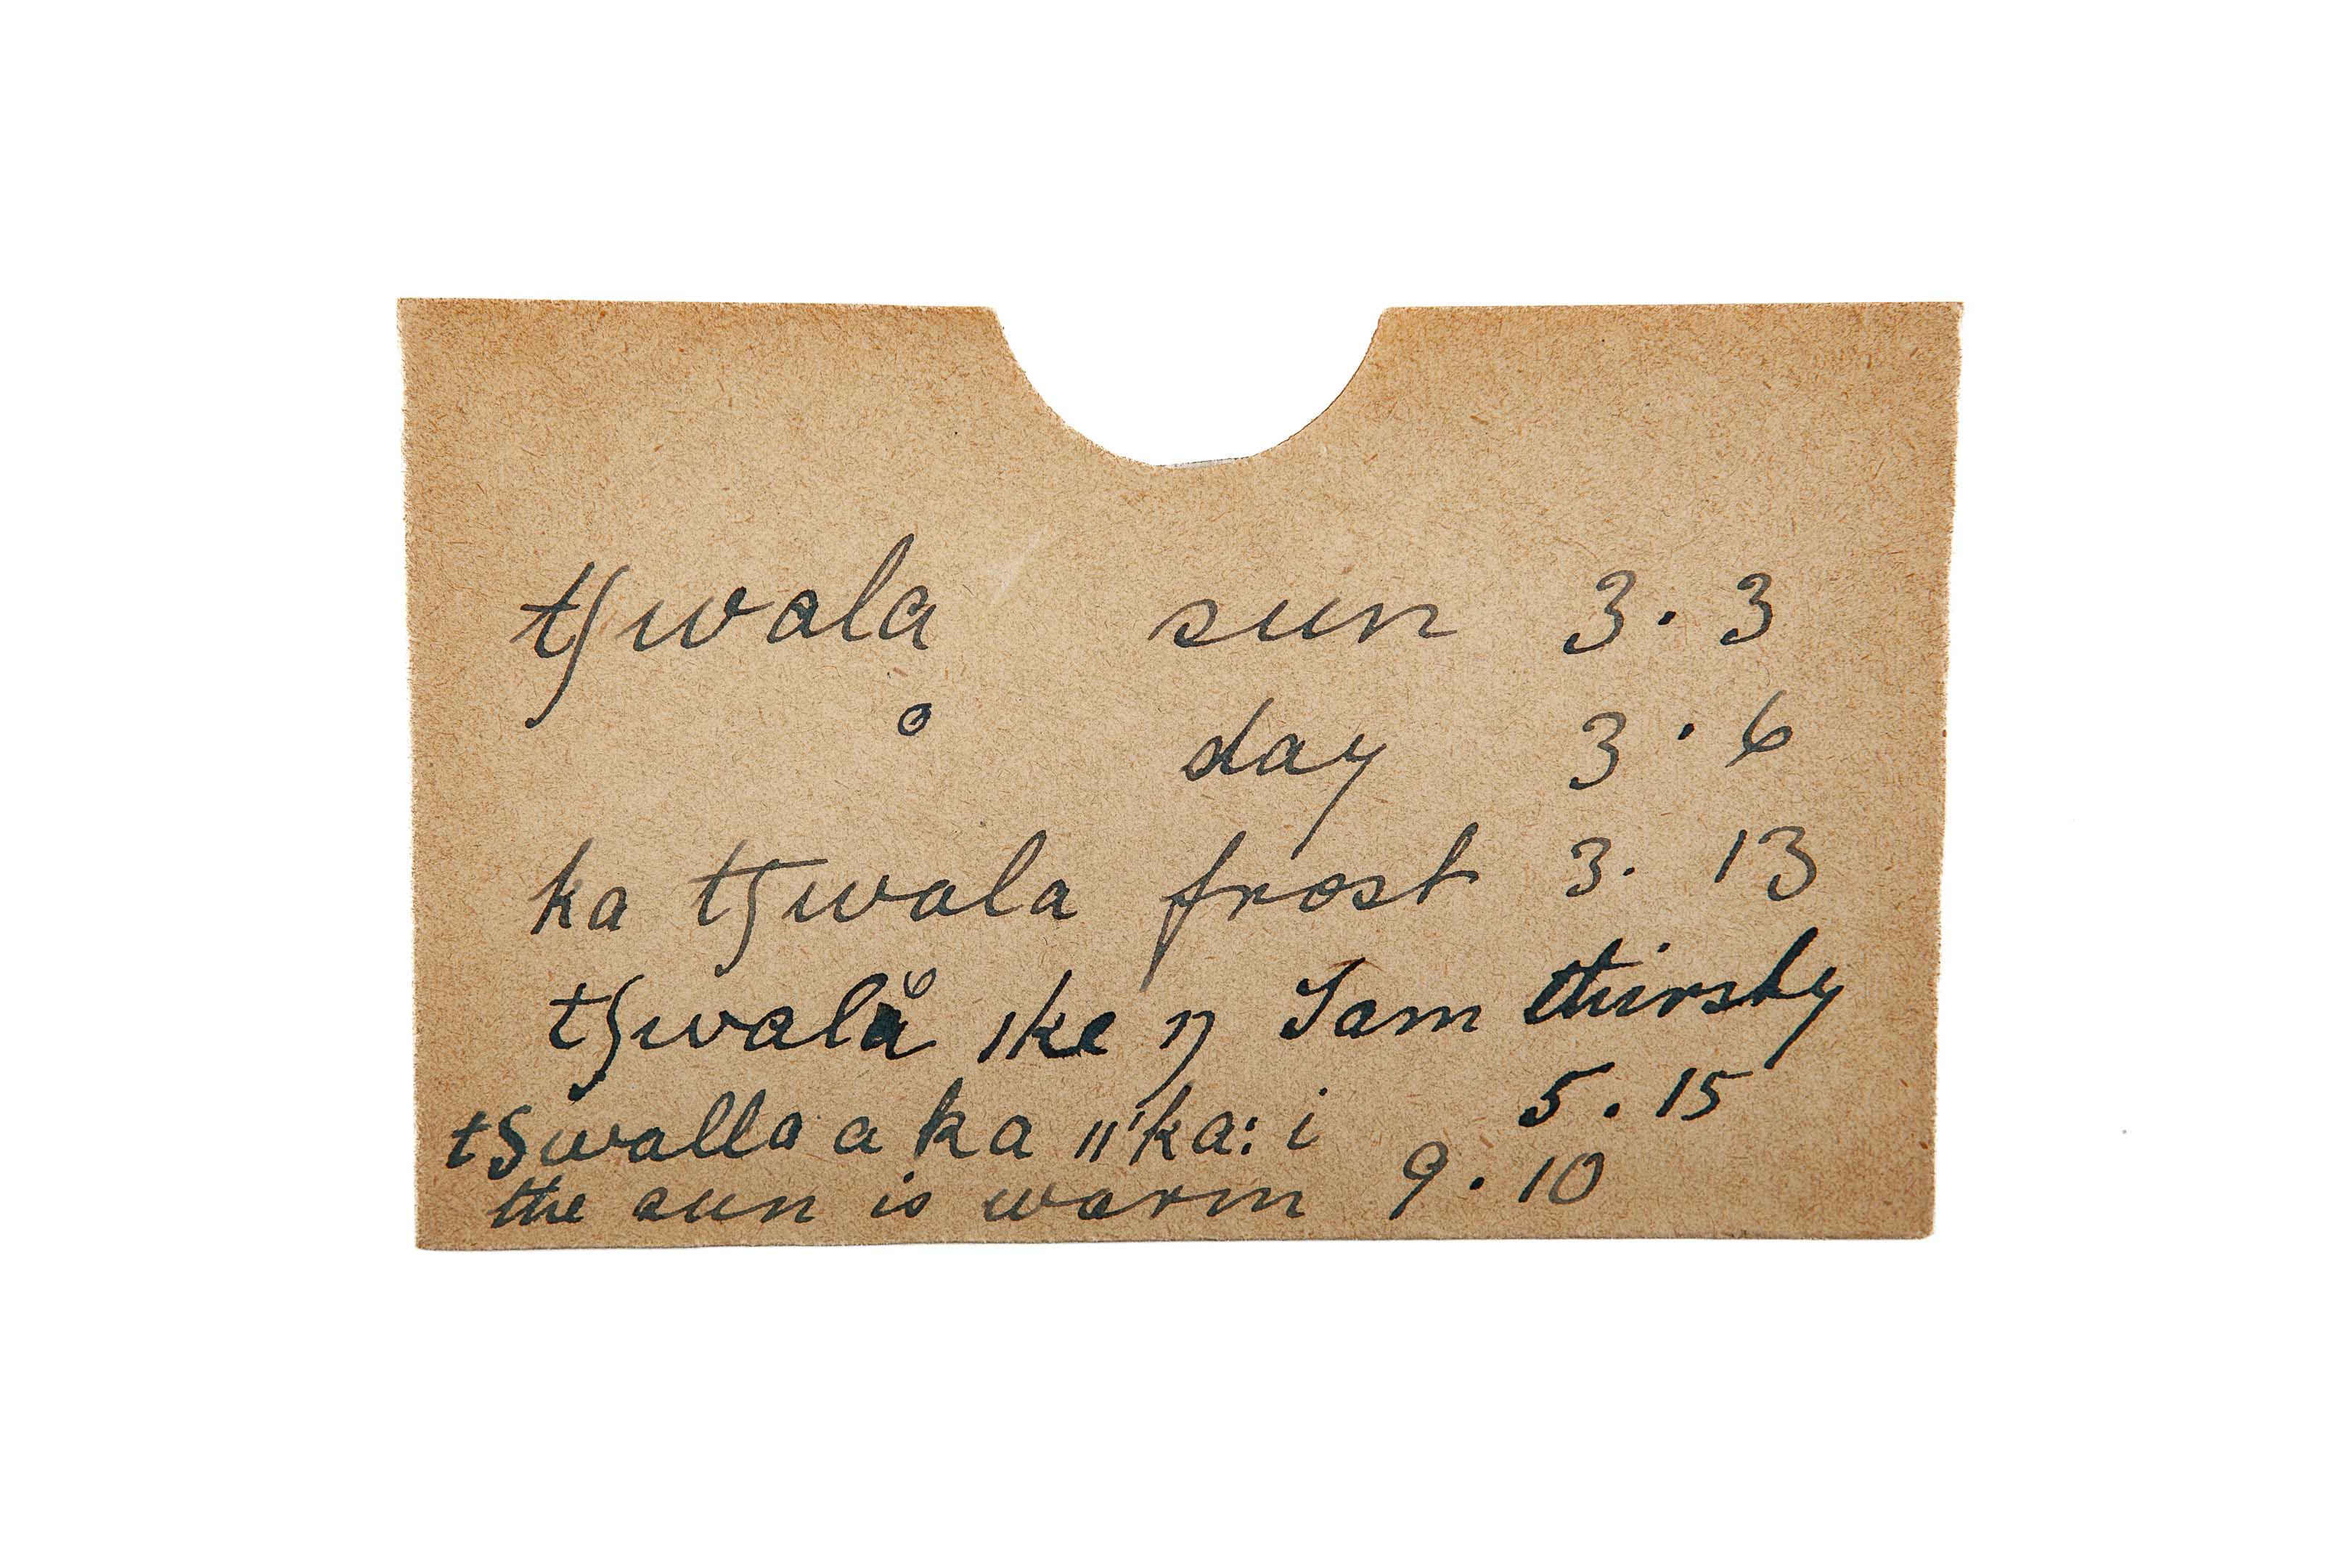 tʃwala sun 3.3
o day 3.6
ka tʃwala frost 3.13
tʃwalå ike ŋ I am thirsty
5.15
tʃwalla a ka ǁ'ka: i
the sun is warm 9.10